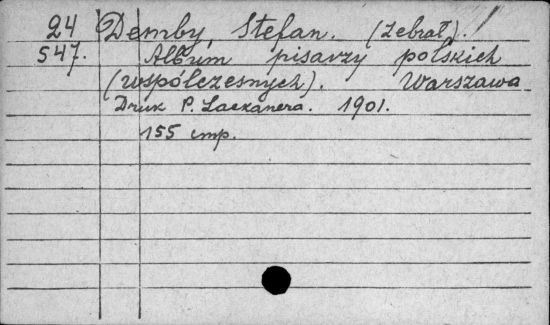 24 Demby, Stefan. (Zebrał).
547. Album pisarzy polskich
(współczesnych). Warszawa
Druk P. Laskauera. 1901.
155 стр.